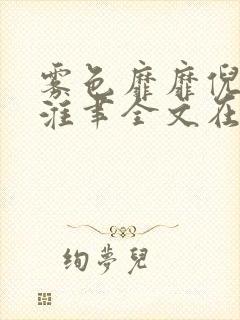 雾色靡靡倪
淮聿全文在
绚梦儿